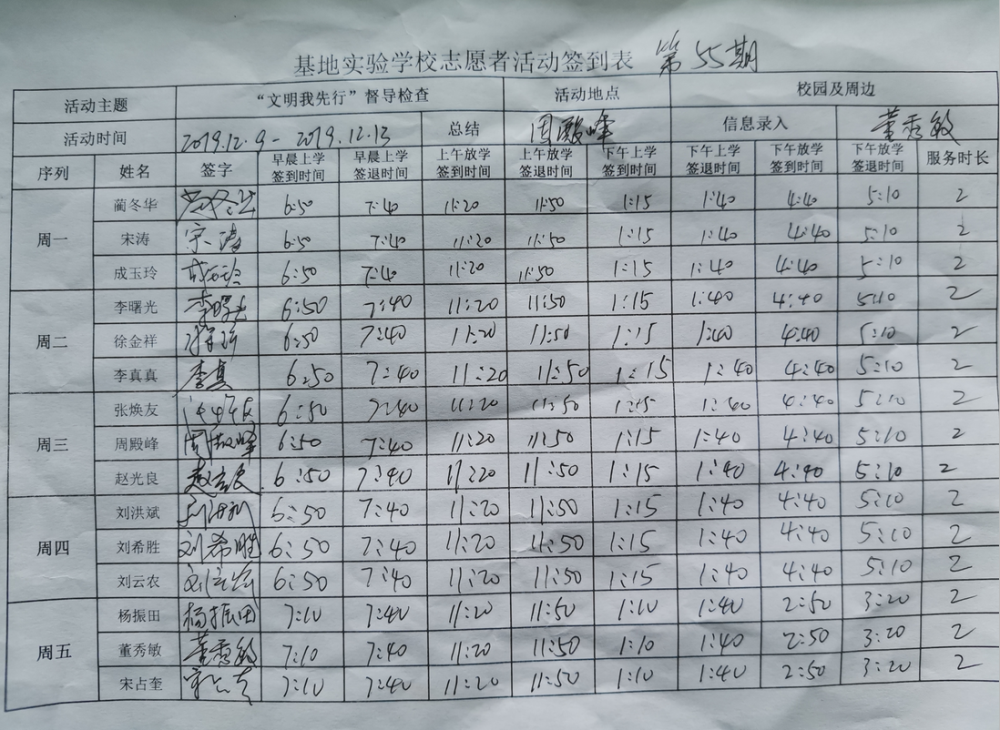 基地实验学校志愿者活动签到表 第55期
活动主题 “文明我先行”督导检查 活动地点 校园及周边
活动时间 2019.12.9-2019.12.13 总结 周殿峰 信息录入 董秀敏
序列 姓名 签字 早晨上学签到时间 早晨上学签退时间 上午放学签到时间 上午放学签退时间 下午上学签到时间 下午上学签退时间 下午放学签到时间 下午放学签退时间 服务时长
周一 蔺冬华 蔺冬华 6:50 7:40 11:20 11:50 1:15 1:40 4:40 5:10 2
宋涛 宋涛 6:50 7:40 11:20 11:50 1:15 1:40 4:40 5:10 2
成玉玲 成玉玲 6:50 7:40 11:20 11:50 1:15 1:40 4:40 5:10 2
周二 李曙光 李曙光 6:50 7:40 11:20 11:50 1:15 1:40 4:40 5:10 2
徐金祥 6:50 7:40 11:20 11:50 1:15 1:40 4:40 5:10 2
李真真 李真 6:50 7:40 11:20 11:50 1:15 1:40 4:40 5:10 2
周三 张焕友 张焕友 6:50 7:40 11:20 11:50 1:15 1:40 4:40 5:10 2
周殿峰 周殿峰 6:50 7:40 11:20 11:50 1:15 1:40 4:40 5:10 2
赵光良 赵光良 6:50 7:40 11:20 11:50 1:15 1:40 4:40 5:10 2
周四 刘洪斌 刘洪斌 6:50 7:40 11:20 11:50 1:15 1:40 4:40 5:10 2
刘希胜 刘希胜 6:50 7:40 11:20 11:50 1:15 1:40 4:40 5:10 2
刘云农 刘云农 6:50 7:40 11:20 11:50 1:15 1:40 4:40 5:10 2
周五 杨振田 杨振田 7:10 7:40 11:20 11:50 1:10 1:40 2:50 3:20 2
董秀敏 董秀敏 7:10 7:40 11:20 11:50 1:10 1:40 2:50 3:20 2
宋占奎 宋占奎 7:10 7:40 11:20 11:50 1:10 1:40 2:50 3:20 2